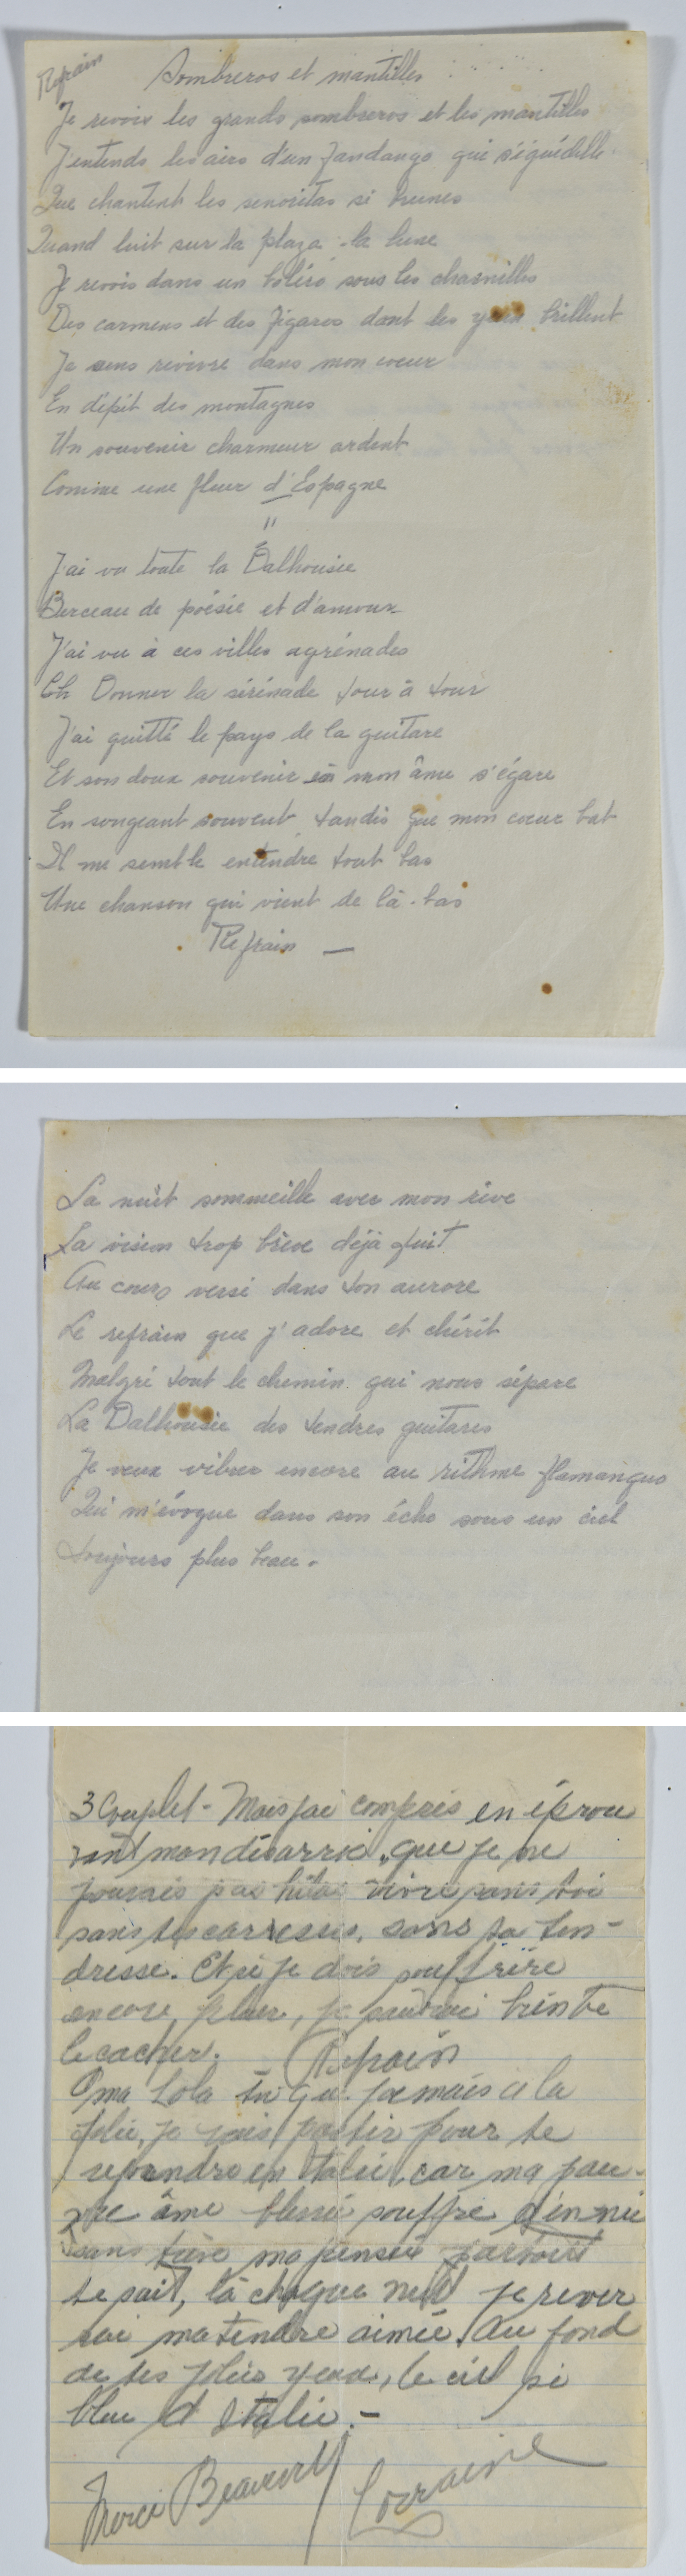 Refrain
Sombreros et mantilles
Je revois les grands sombreros et les mantilles
J'entends les airs d'un fandango qui séguédille
Que chantent les senoritas si brunes
Quand luit sur la plaza la lune
Je revois dans un boléro sous les charmilles
Des carmens et des figaros dont les yeux brillent
Je sens revivre dans mon coeur
En dépit des montagnes
Un souvenir charmeur ardent
Comme une fleur d'Espagne
"
J'ai vu toute la Dalhousie
Berceau de poésie et d'amour
J'ai vu à ces villes agrénades
Donner la sérénade tour à tour
J'ai quitté le pays de la guitare
Et son doux souvenir en mon âme s'égare
En songeant souvent tandis que mon coeur bat
Il me semble entendre tout bas
Une chanson qui vient de là-bas
Refrain —
La nuit sommeille avec mon rêve
La vision trop brève déjà fuit
Au cours versé dans ton aurore
Le refrain que j'adore et chérit
Malgré tout le chemin qui nous sépare
La Dalhousie des tendres guitares
Je veux vibrer encore au rithme flamanguo
Qui m'évoque dans son écho sous un ciel
toujours plus beau.
3 Couplet - Mais jai compris en éprou
vant mon désarroi, que je ne
pourais pas vivre sans toi
sans tes carresses, sans ta ten-
dresse. Et si je dois souffrire
encore, je saurai bien te
le cacher. Refrain
O ma Lola tu qu jamais a la
folie, je vais partir pour te
reprendre en Italie, car ma pau-
vre âme blessé souffre d'énnui
sans trève ma pensée partout
te suit, là chaque nuit je rever
rai ma tendre aimée. Au fond
de tes jolies yeux, le ciel si
bleu d'Italie. -
Merci Beaucoup
Lorraine